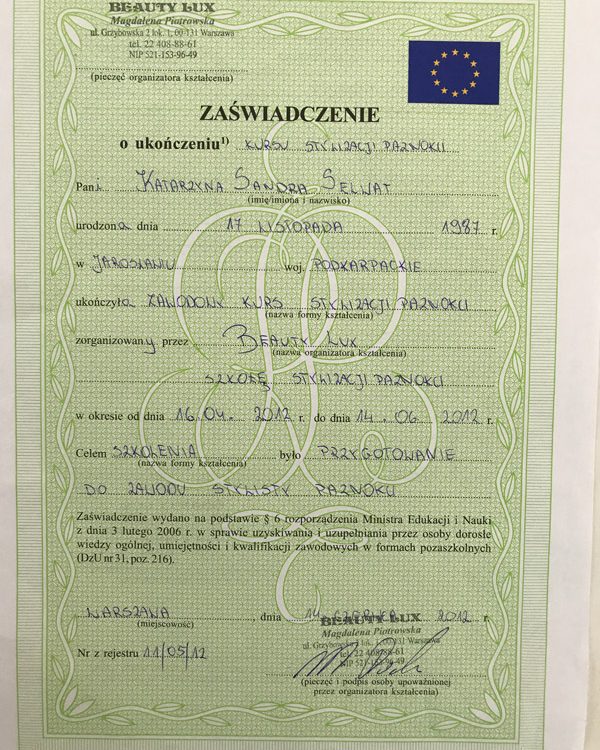 BEAUTY LUX
Magdalena Piotrowska
ul. Grzybowska 2 lok. 1, 00-131 Warszawa
tel. 22 408-88-61
NIP 521-153-96-49
(pieczęć organizatora kształcenia)
ZAŚWIADCZENIE
o ukończeniu¹⁾ KURSU STYLIZACJI PAZNOKCI
Pani KATARZYNA SANDRA SELWAT
(imię/imiona i nazwisko)
urodzona dnia 17 LISTOPADA 1987 r.
w JAROSŁAWIU woj. PODKARPACKIE
ukończyła ZAWODOWY KURS STYLIZACJI PAZNOKCI
(nazwa formy kształcenia)
zorganizowany przez BEAUTY LUX
(nazwa organizatora kształcenia)
SZKOŁĘ STYLIZACJI PAZNOKCI
w okresie od dnia 16.04.2012 r. do dnia 14.06.2012 r.
Celem SZKOLENIA było PRZYGOTOWANIE
(nazwa formy kształcenia)
DO ZAWODU STYLISTY PAZNOKCI
Zaświadczenie wydano na podstawie § 6 rozporządzenia Ministra Edukacji i Nauki
z dnia 3 lutego 2006 r. w sprawie uzyskiwania i uzupełniania przez osoby dorosłe
wiedzy ogólnej, umiejętności i kwalifikacji zawodowych w formach pozaszkolnych
(DzU nr 31, poz. 216).
WARSZAWA, dnia 14 CZERWCA 2012 r.
(miejscowość)
BEAUTY LUX
Magdalena Piotrowska
ul. Grzybowska 2 lok. 1, 00-131 Warszawa
tel. 22 408-88-61
NIP 521-153-96-49
Nr z rejestru 11/05/12
(pieczęć i podpis osoby upoważnionej
przez organizatora kształcenia)